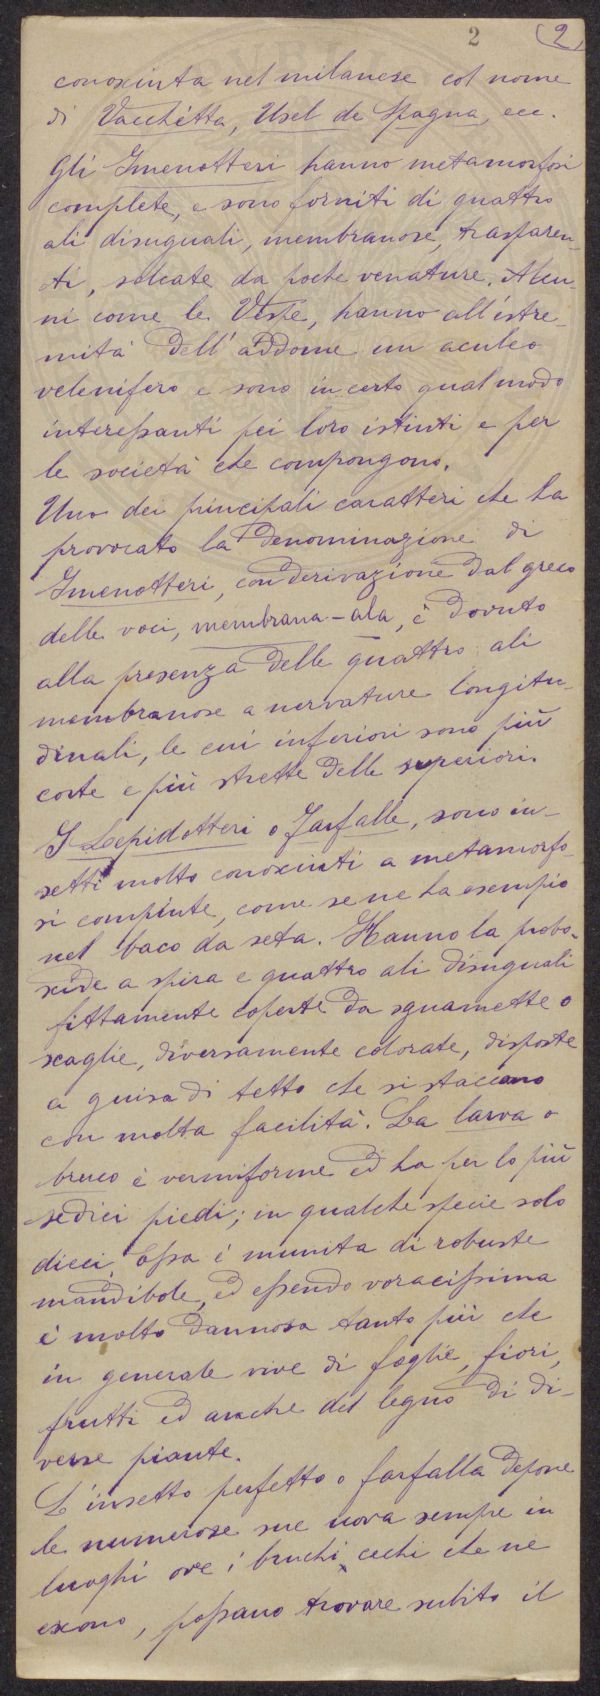 2 (2)
conosciuta nel milanese col nome
di Vacchetta, Usel de Spagna, ecc.
Gli Imenotteri hanno metamorfosi
complete, e sono forniti di quattro
ali disuguali, membranose, trasparen-
ti, solcate da poche venature. Alcu-
ni come le Vespe, hanno all'estre-
mità dell'addome un aculeo
velenifero e sono in certo qual modo
interessanti pei loro istinti e per
le società che compongono.
Uno dei principali caratteri che ha
provocato la denominazione di
Imenotteri, con derivazione dal greco
delle voci, membrana-ala, è dovuto
alla presenza delle quattro ali
membranose a nervature longitu-
dinali, le cui inferiori sono più
corte e più strette delle superiori.
I Lepidotteri o Farfalle, sono in-
setti molto conosciuti a metamorfo-
si compiute, come se ne ha esempio
nel baco da seta. Hanno la probo-
scide a spira e quattro ali disuguali
fittamente coperte da squamette o
scaglie, diversamente colorate, disposte
a guisa di tetto che si staccano
con molta facilità. La larva o
bruco è vermiforme ed ha per lo più
sedici piedi; in qualche specie solo
dieci. Essa è munita di robuste
mandibole, ed essendo voracissima
è molto dannosa tanto più che
in generale vive di foglie, fiori,
frutti ed anche del legno di di-
verse piante.
L'insetto perfetto o farfalla depone
le numerose sue uova sempre in
luoghi ove i bruchi cechi che ne
escono, possano trovare subito il